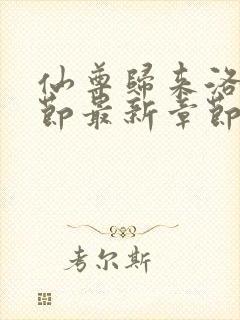 仙尊歸来洛
節最新章節
考尔斯